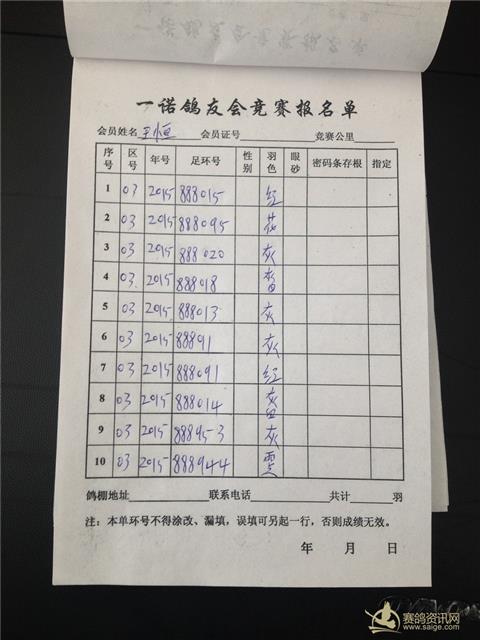 一诺鸽友会竞赛报名单
会员姓名 王恒 会员证号 竞赛公里
序号 区号 年号 足环号 性别 羽色 眼砂 密码条存根 指定
1 03 2015 888015 红
2 03 2015 888095 花
3 03 2015 888020 灰
4 03 2015 888018
5 03 2015 888013 灰
6 03 2015 88891 灰
7 03 2015 888091 红
8 03 2015 888014
9 03 2015 888953 灰
10 03 2015 888944
鸽棚地址 联系电话 共计 羽
注：本单环号不得涂改、漏填，误填可另起一行，否则成绩无效。
年 月 日
赛鸽资讯网
www.saige.com